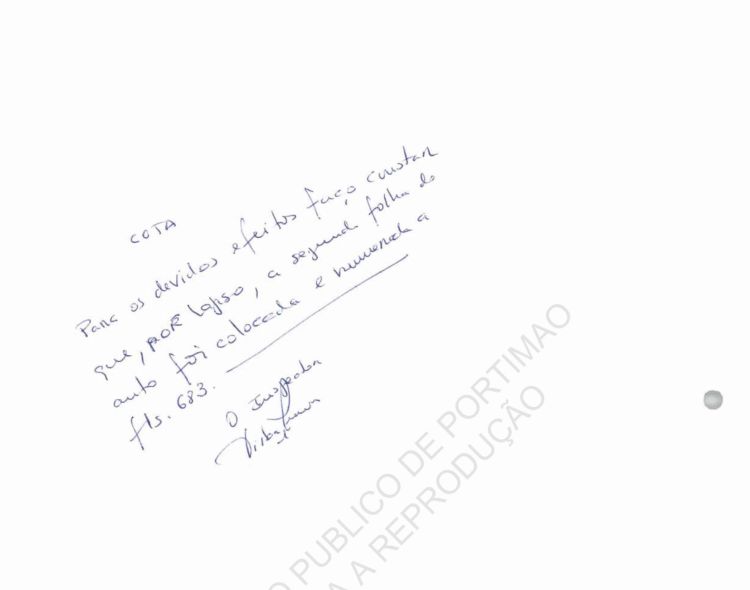 COTA
Para os devidos efeitos faço constar
que, por lapso, a segunda folha do
auto foi colocada e numerada a
fls. 683.
O Inspector
O PUBLICO DE PORTIMAO
A A REPRODUÇÃO